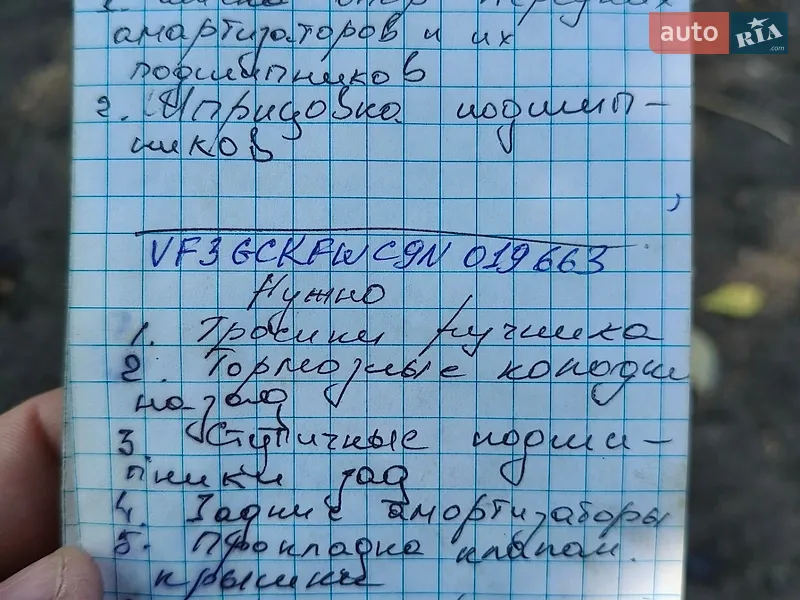 опор передних
амартизаторов и их
подшипников
2. Шприцовка подшип-
ников
VF3GCKFWC9N019663
Нужно
1. Тросики ручника
2. Тормозные колодки
назад
3 Ступичные подши-
пники зад
4. Задние амортизаторы
5. Прокладка клапан.
крышки
auto RIA .com